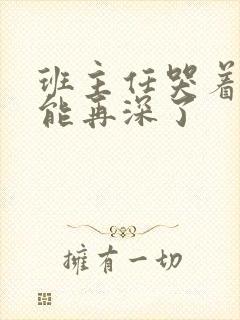 班主任哭着
能再深了
擁有一切